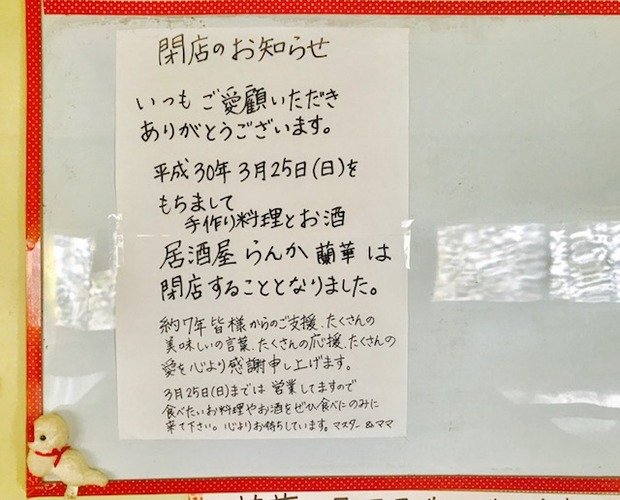 閉店のお知らせ
いつもご愛顧いただき
ありがとうございます。
平成30年3月25日(日)を
もちまして
手作り料理とお酒
居酒屋らんか 蘭華 は
閉店することとなりました。
約7年皆様からのご支援、たくさんの
美味しいの言葉、たくさんの応援、たくさんの
愛を心より感謝申し上げます。
3月25日(日)までは営業してますので
食べたいお料理やお酒をぜひ食べにのみに
来て下さい。心よりお待ちしています。マスター&ママ